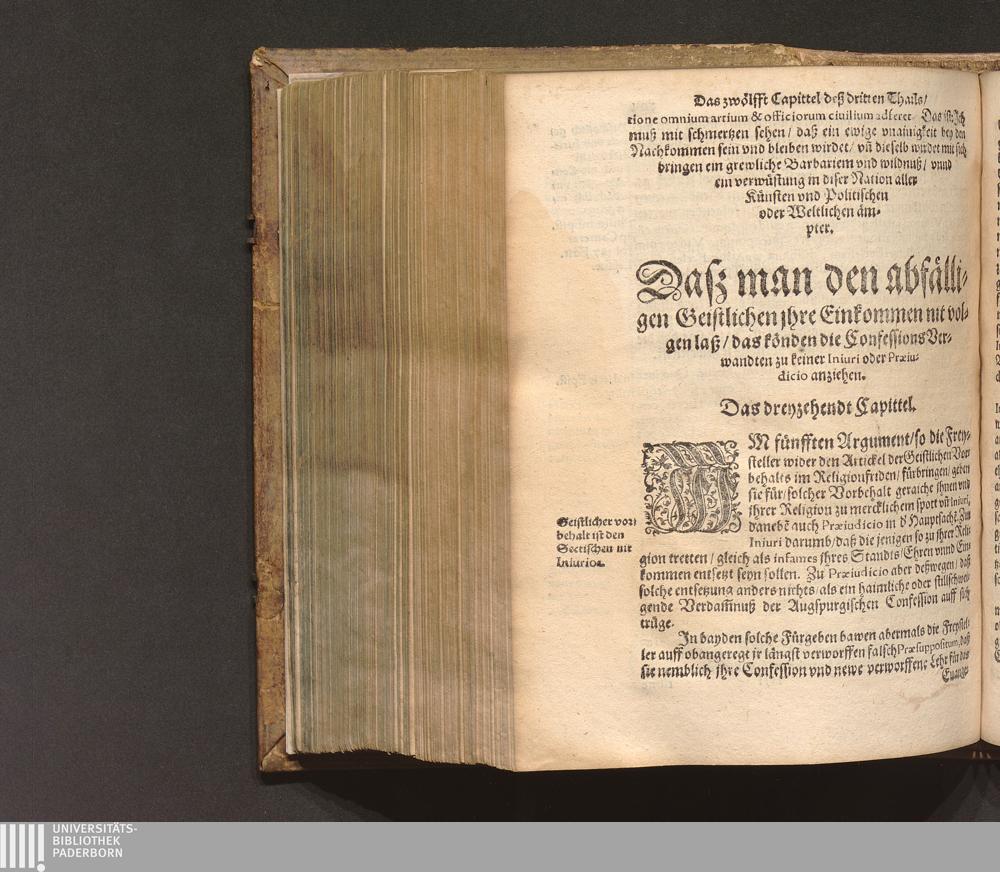 Das zwölfft Capittel deß dritten Thails/
tione omnium artium & officiorum ciuilium adferet. Das ist: Ich
muß mit schmertzen sehen/ daß ein ewige vnainigkeit bey den
Nachkommen sein vnd bleiben wirdet/ vñ dieselb wirdet mit sich
bringen ein grewliche Barbariem vnd wildnuß/ vnnd
ein verwüstung in diser Nation aller
Künsten vnd Politischen
oder Weltlichen äm-
pter.
Daß man den abfälli-
gen Geistlichen jhre Einkommen nit vol-
gen laß/ das könden die Confessions Ver-
wandten zu keiner Iniuri oder Præiu-
dicio anziehen.
Das dreyzehendt Capittel.
IM fünfften Argument/ so die Frey-
steller wider den Artickel der Geistlichen Vor-
behalts im Religionfriden/ fürbringen/ geben
sie für/ solcher Vorbehalt geraiche jhnen vnd
jhrer Religion zu mercklichem spott vñ Iniuri,
danebẽ auch Præiudicio in d' Hauptsachẽ. Zum
Iniuri darumb/ daß die jenigen so zu jhrer Reli-
gion tretten/ gleich als infames jhres Standts/ Ehren vnnd Ein-
kommen entsetzt seyn sollen. Zu Præiudicio aber deßwegen/ daß
solche entsetzung anders nichts/ als ein haimliche oder stillschwei-
gende Verdamnuß der Augspurgischen Confession auff sich
trüge.
Geistlicher vor-
behalt ist den
Sectischen nit
Iniurios.
In bayden solche Fürgeben bawen abermals die Freystel-
ler auff obangeregt jr längst verworffen falsch Præsuppositum, daß
sie nemblich jhre Confession vnd newe verworffene Lehr für das
Euange-
UNIVERSITÄTS-
BIBLIOTHEK
PADERBORN